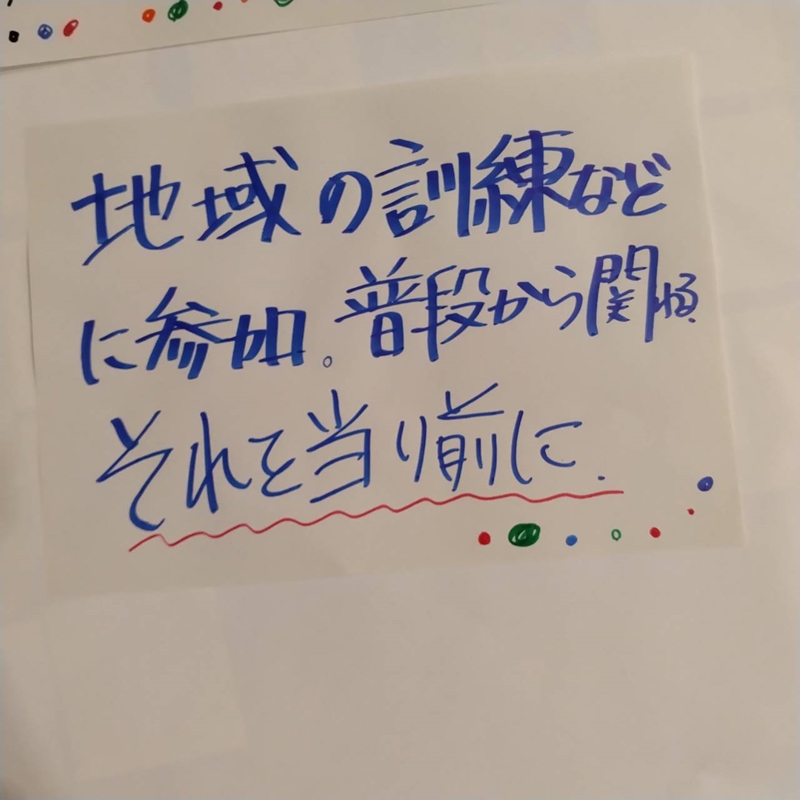 地域の訓練など
に参加。普段から関わる、
それを当り前に.